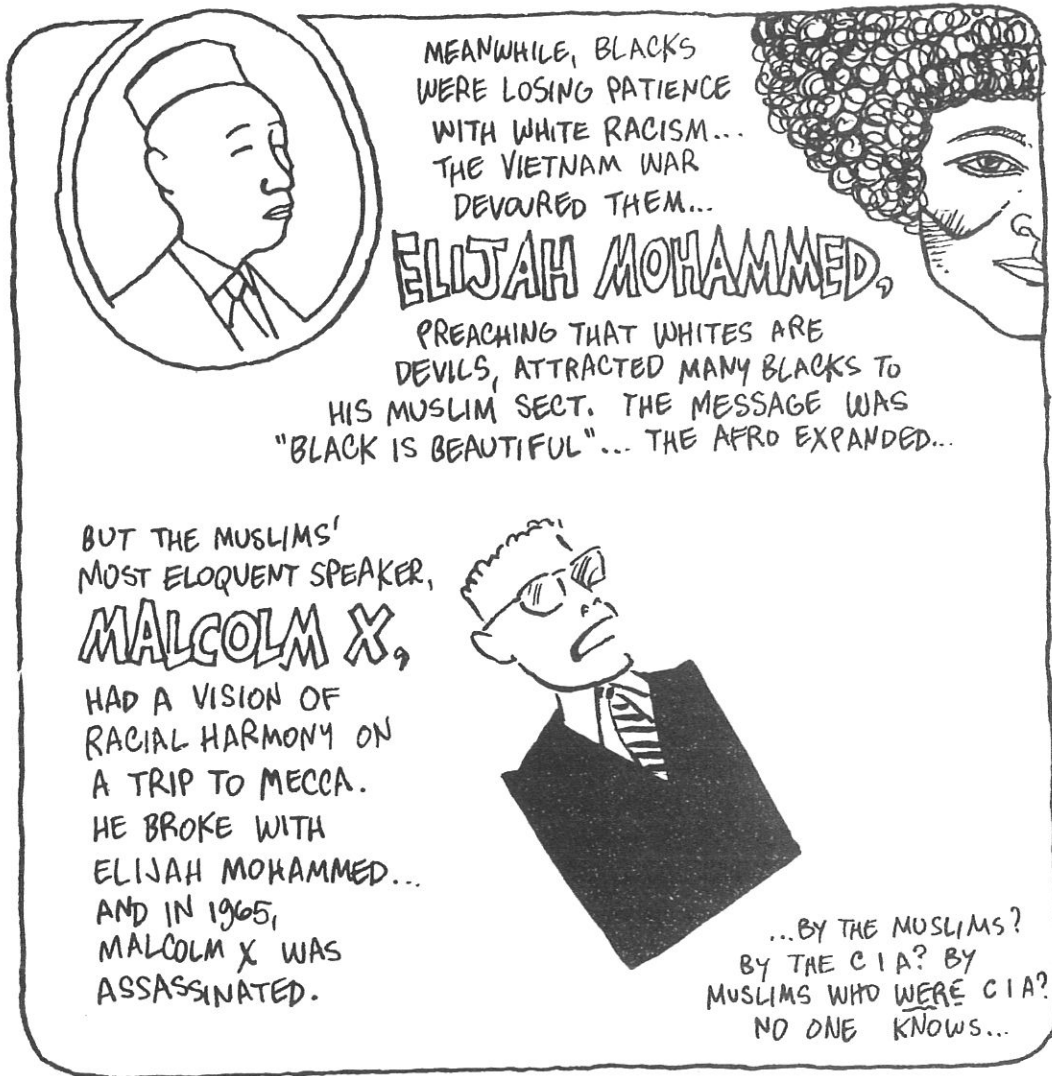 MEANWHILE, BLACKS
WERE LOSING PATIENCE
WITH WHITE RACISM...
THE VIETNAM WAR
DEVOURED THEM...
ELIJAH MOHAMMED,
PREACHING THAT WHITES ARE
DEVILS, ATTRACTED MANY BLACKS TO
HIS MUSLIM SECT. THE MESSAGE WAS
"BLACK IS BEAUTIFUL"... THE AFRO EXPANDED...
BUT THE MUSLIMS'
MOST ELOQUENT SPEAKER,
MALCOLM X,
HAD A VISION OF
RACIAL HARMONY ON
A TRIP TO MECCA.
HE BROKE WITH
ELIJAH MOHAMMED...
AND IN 1965,
MALCOLM X WAS
ASSASSINATED.
...BY THE MUSLIMS?
BY THE CIA? BY
MUSLIMS WHO WERE CIA?
NO ONE KNOWS...